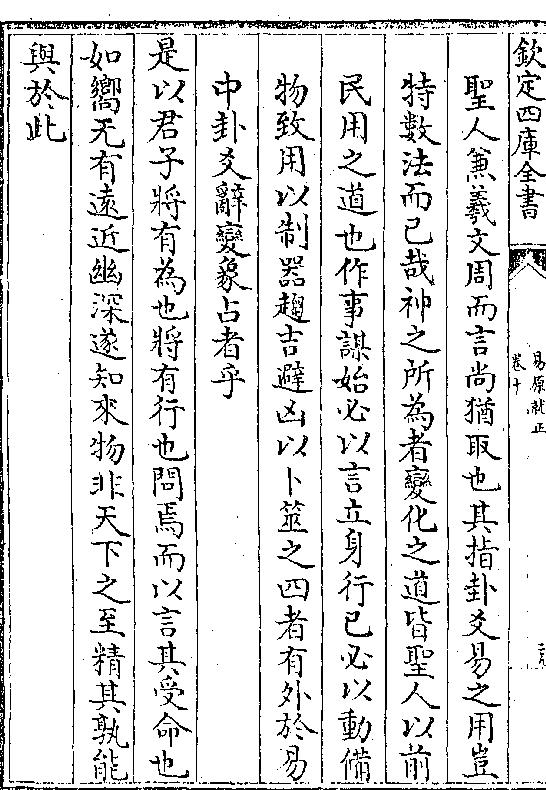 欽定四庫全書
易原就正
卷十
聖人兼羲文周而言尚猶取也其指卦爻易之用豈
特數法而已哉神之所為者變化之道皆聖人以前
民用之道也作事謀始必以言立身行已必以動備
物致用以制器趨吉避凶以卜筮之四者有外於易
中卦爻辭變象占者乎
是以君子將有為也將有行也問焉而以言其受命也
如嚮无有遠近幽深遂知來物非天下之至精其孰能
與於此